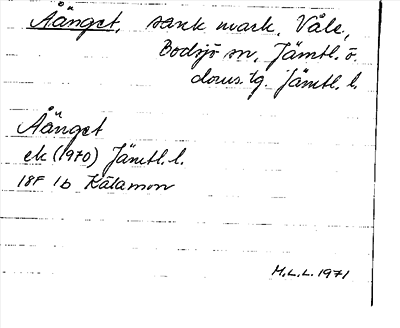 Åänget, sank mark, Våle,
Bodsjö sn, Jämtl. ö.
doms. lg Jämtl. l.
Åänget
ek (1970) Jämtl. l.
18F 1b Kälamon
M.L.L. 1971